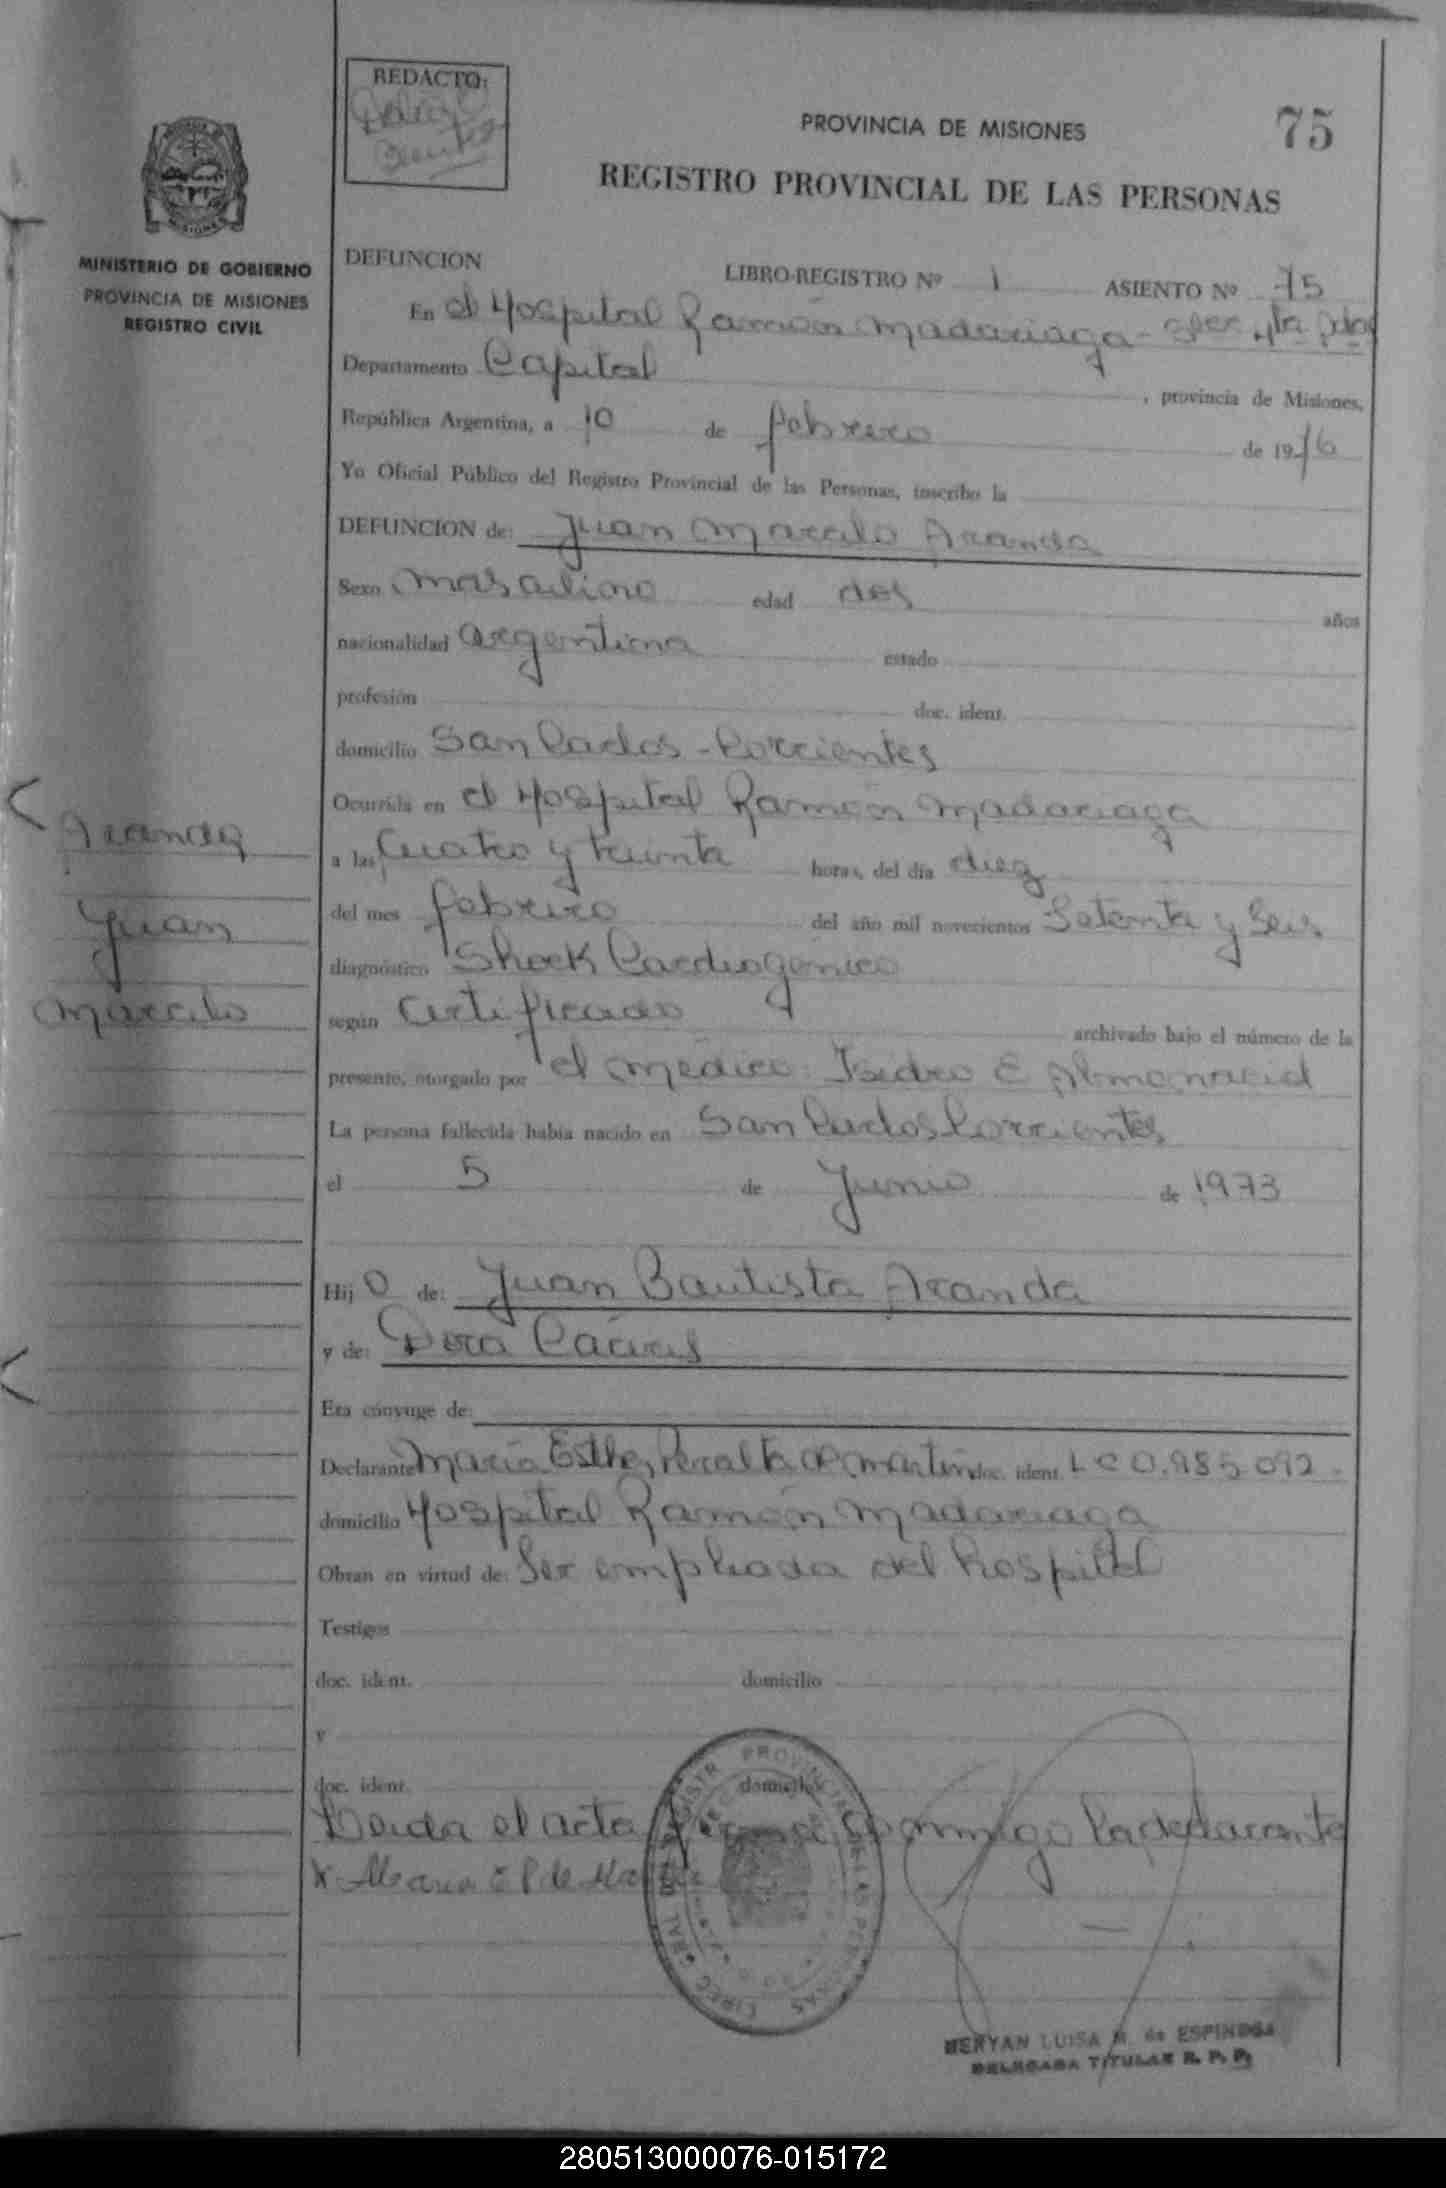 REDACTO:
PROVINCIA DE MISIONES
75
REGISTRO PROVINCIAL DE LAS PERSONAS
MINISTERIO DE GOBIERNO
PROVINCIA DE MISIONES
REGISTRO CIVIL
DEFUNCION LIBRO-REGISTRO Nº 1 ASIENTO Nº 75
En el Hospital Ramón Madariaga - 4ta
Departamento Capital , provincia de Misiones,
República Argentina, a 10 de febrero de 1976
Yo Oficial Público del Registro Provincial de las Personas, inscribo la
DEFUNCION de: Juan Marcelo Aranda
Sexo masculino edad dos años
nacionalidad argentina estado
profesión doc. ident.
domicilio San Carlos - Corrientes
Ocurrida en el Hospital Ramón Madariaga
a las Cuatro y treinta horas, del día diez
del mes febrero del año mil novecientos Setenta y Seis
diagnóstico Shock Cardiogenico
según Certificado archivado bajo el número de la
presente, otorgado por el médico: Isidro E Almonacid
La persona fallecida había nacido en San Carlos Corrientes
el 5 de Junio de 1973
Hijo de: Juan Bautista Aranda
y de: Dora
Era cónyuge de:
Declarante María Esther Peralta de Martin doc. ident. LC 0.985.092.
domicilio Hospital Ramón Madariaga
Obran en virtud de: Ser empleada del hospital
Testigos
doc. ident. domicilio
y
doc. ident. domicilio
Leida el acta conmigo la declarante
x Maria E P de
Aranda
Juan
Marcelo
MERYAN LUISA M. de ESPINOSA
DELEGADA TITULAR R. P. P.
280513000076-015172